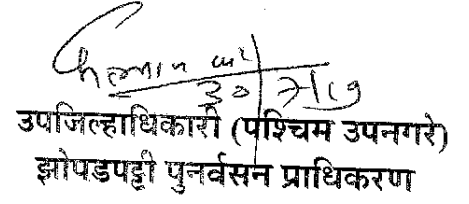 उपजिल्हाधिकारी (पश्चिम उपनगरे)
झोपडपट्टी पुनर्वसन प्राधिकरण